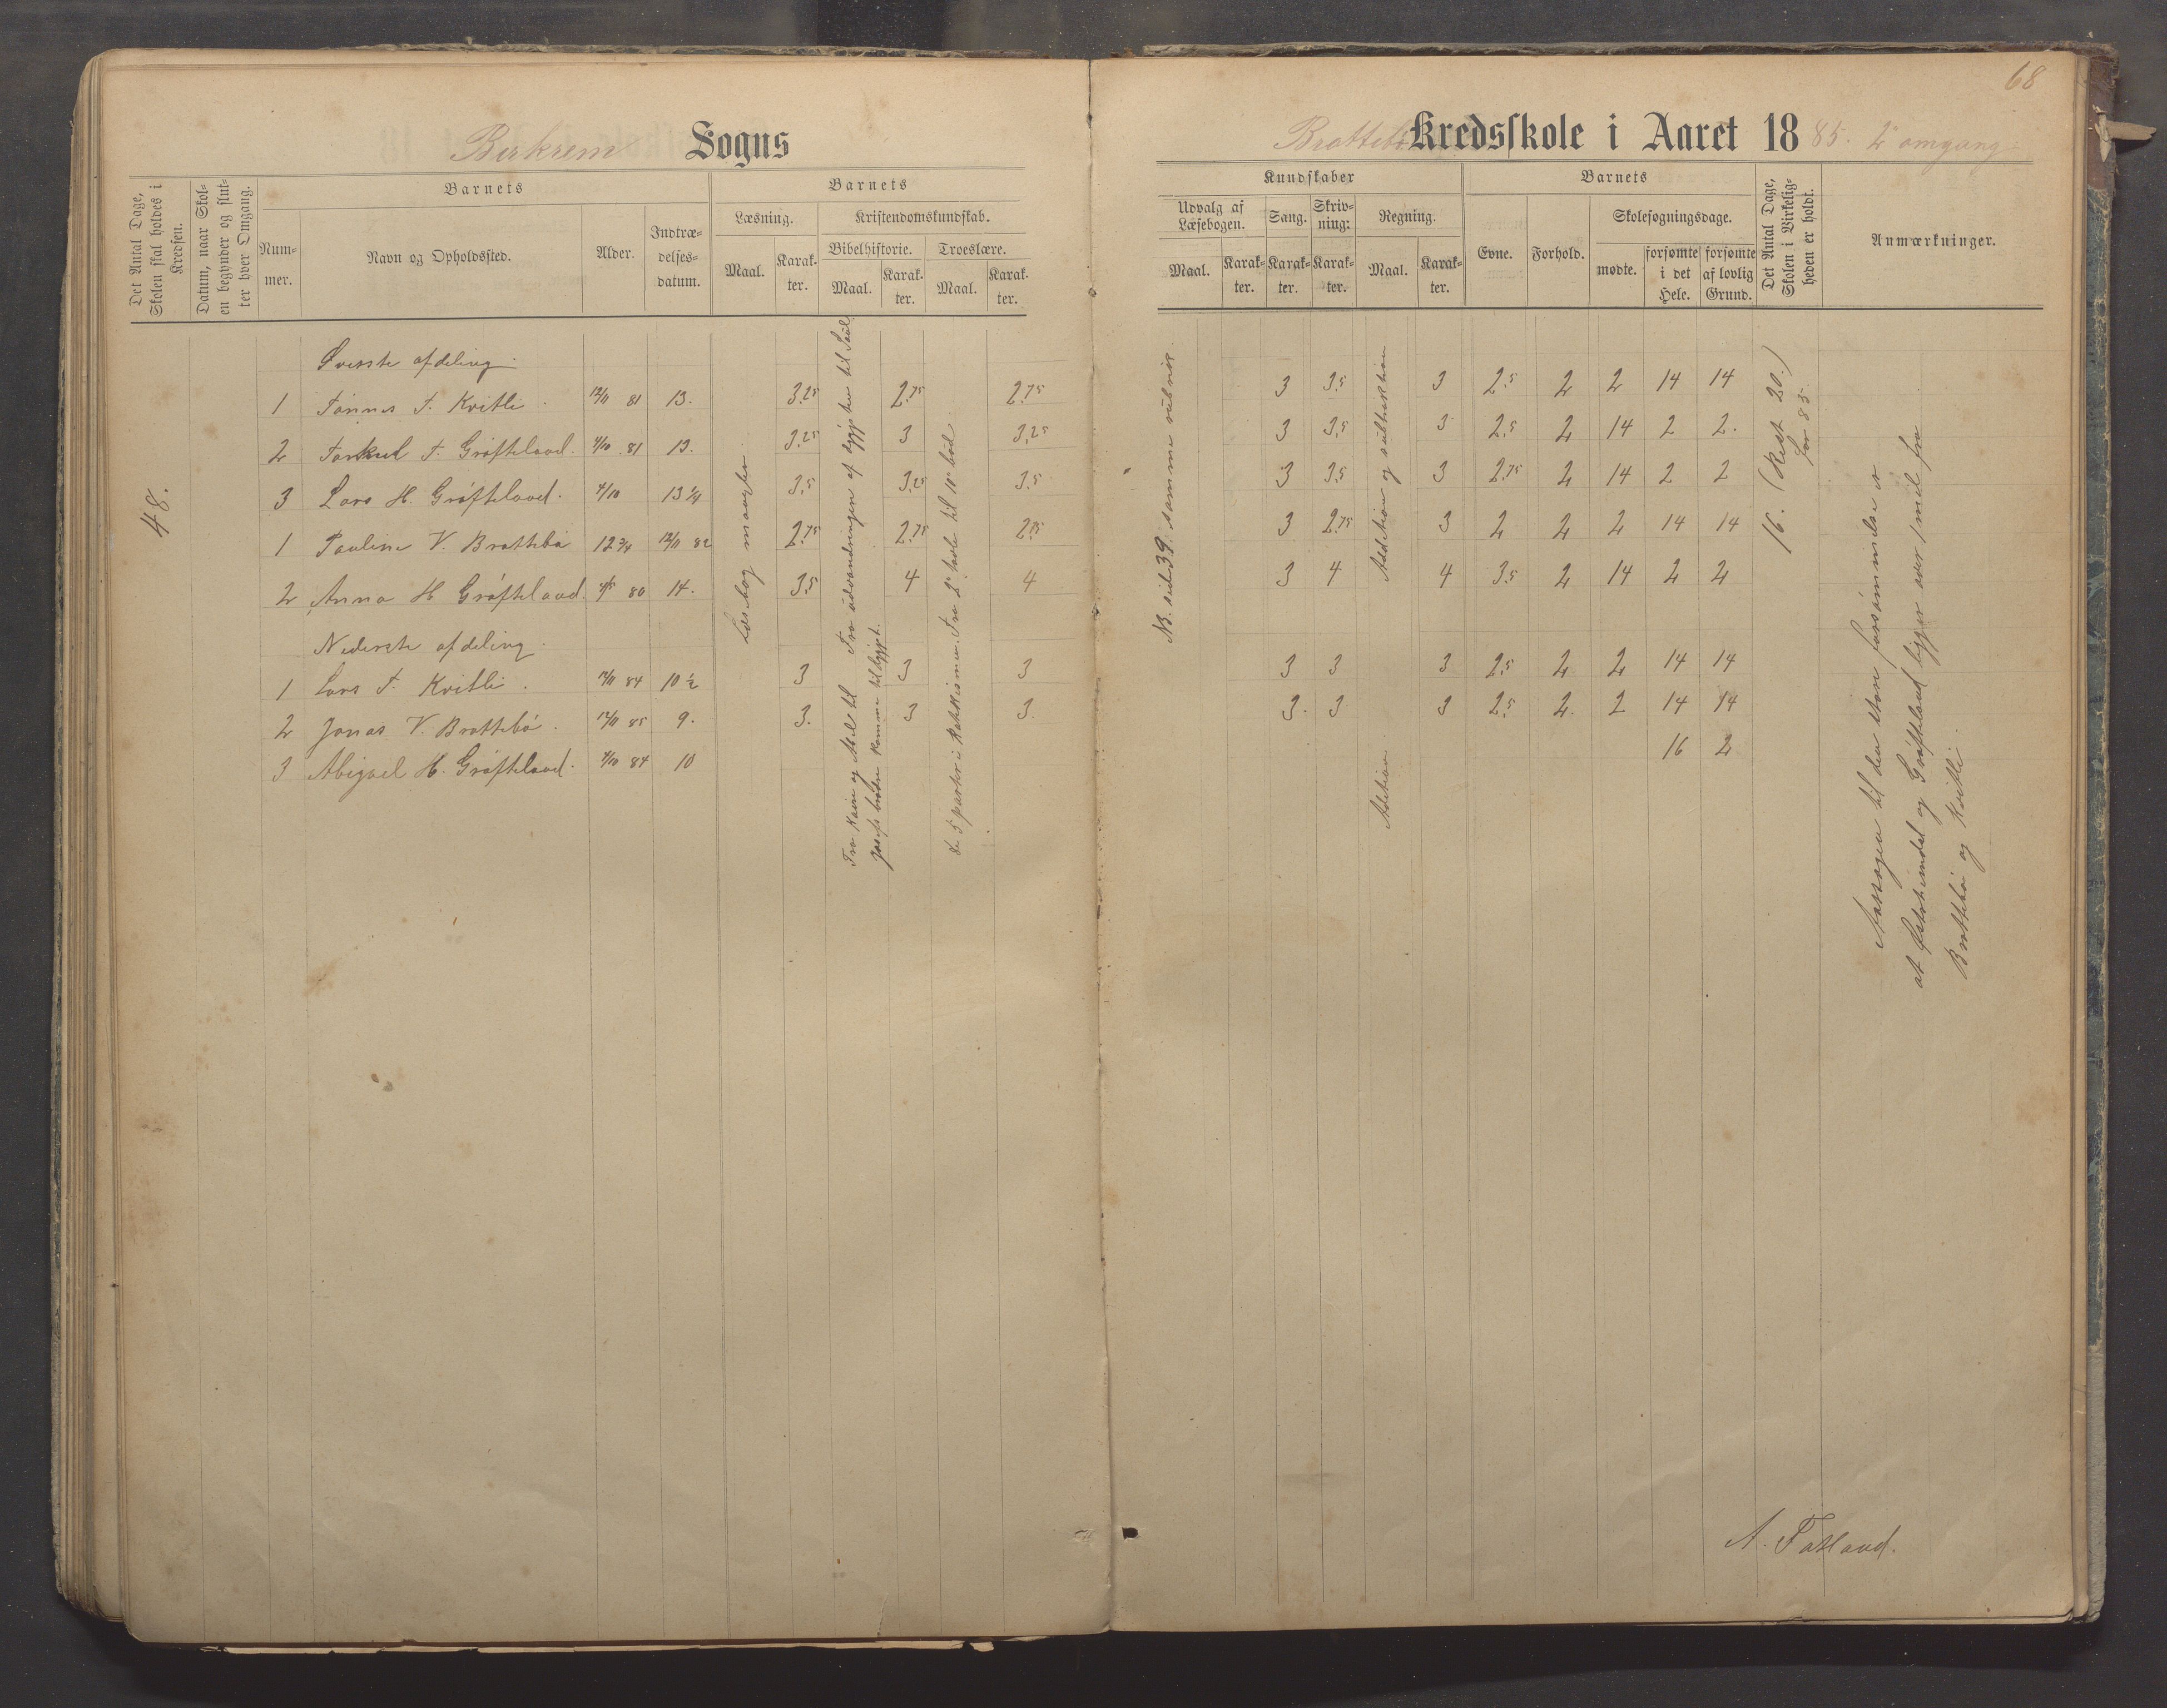 Birkrem Sogns
Det Antal Dage, Skolen skal holdes i Kredsen.
Datum, naar Skolen begynder og slutter hver Omgang.
Barnets
Nummer.
Navn og Opholdssted.
Alder.
Indtrædelsesdatum.
Barnets
Læsning.
Kristendomskundskab.
Bibelhistorie.
Troeslære.
Maal. Karakter. Maal. Karakter. Maal. Karakter.
48.
Øverste afdeling.
1 Tønnes T. Kvitli. 12/11 81 13. 3.25 2.75 2.75
2 Torkel T. Grøfteland. 4/10 81 13. 3.25 3 3.25
3 Lars H. Grøfteland. 4/10 13 1/4 3.5 3.25 3.5
1 Pauline V. Brattebø 12 3/4 12/11 82 2.75 2.75 2.75
2 Anna H Grøfteland. 80 14. 3.5 4 4
Nederste afdeling.
1 Lars T. Kvitli. 12/11 84 10 1/2 3 3 3
2 Jonas V. Brattebø. 12/11 85 9. 3. 3 3.
3 Abigael H. Grøfteland. 4/10 84 10
Læsebog maanefer
Fra udvandringen af Ægypten til Saul.
Fra Kain og Abel til
Josefs brødre komme til Ægypt.
Fra 2den parl til 10de bud
de 5 parter i Katekismen.
68
Brattebø Kredsskole i Aaret 1885. 2den omgang.
Kundskaber
Udvalg af Læsebogen.
Sang.
Skrivning.
Regning.
Maal. Karakter. Karakter. Karakter. Maal. Karakter.
Barnets
Evne. Forhold.
Skolesøgningsdage.
mødte.
forsømte i det Hele.
forsømte af lovlig Grund.
Det Antal Dage, Skolen i Virkeligheden er holdt.
Anmærkninger.
3 3.5 3 2.5 2 2 14 14
3 3.5 3 2.5 2 14 2 2.
3 3.5 3 2.75 2 14 2 2
3 2.75 3 2 2 2 14 14
3 4 4 3.5 2 14 2 2
3 3 3 2.5 2 2 14 14
3. 3 3 2.5 2. 2 14 14
16 2
NB. side 39. samme rubrik.
Addition og subtraktion
Addition.
16. (Rest 20.)
for 85.
Aarsagen til den store forsømmelse er
at Østebrødal og Grøfteland ligger over 1 mil fra
Brattebø og Kvitli.
A. Fatland.